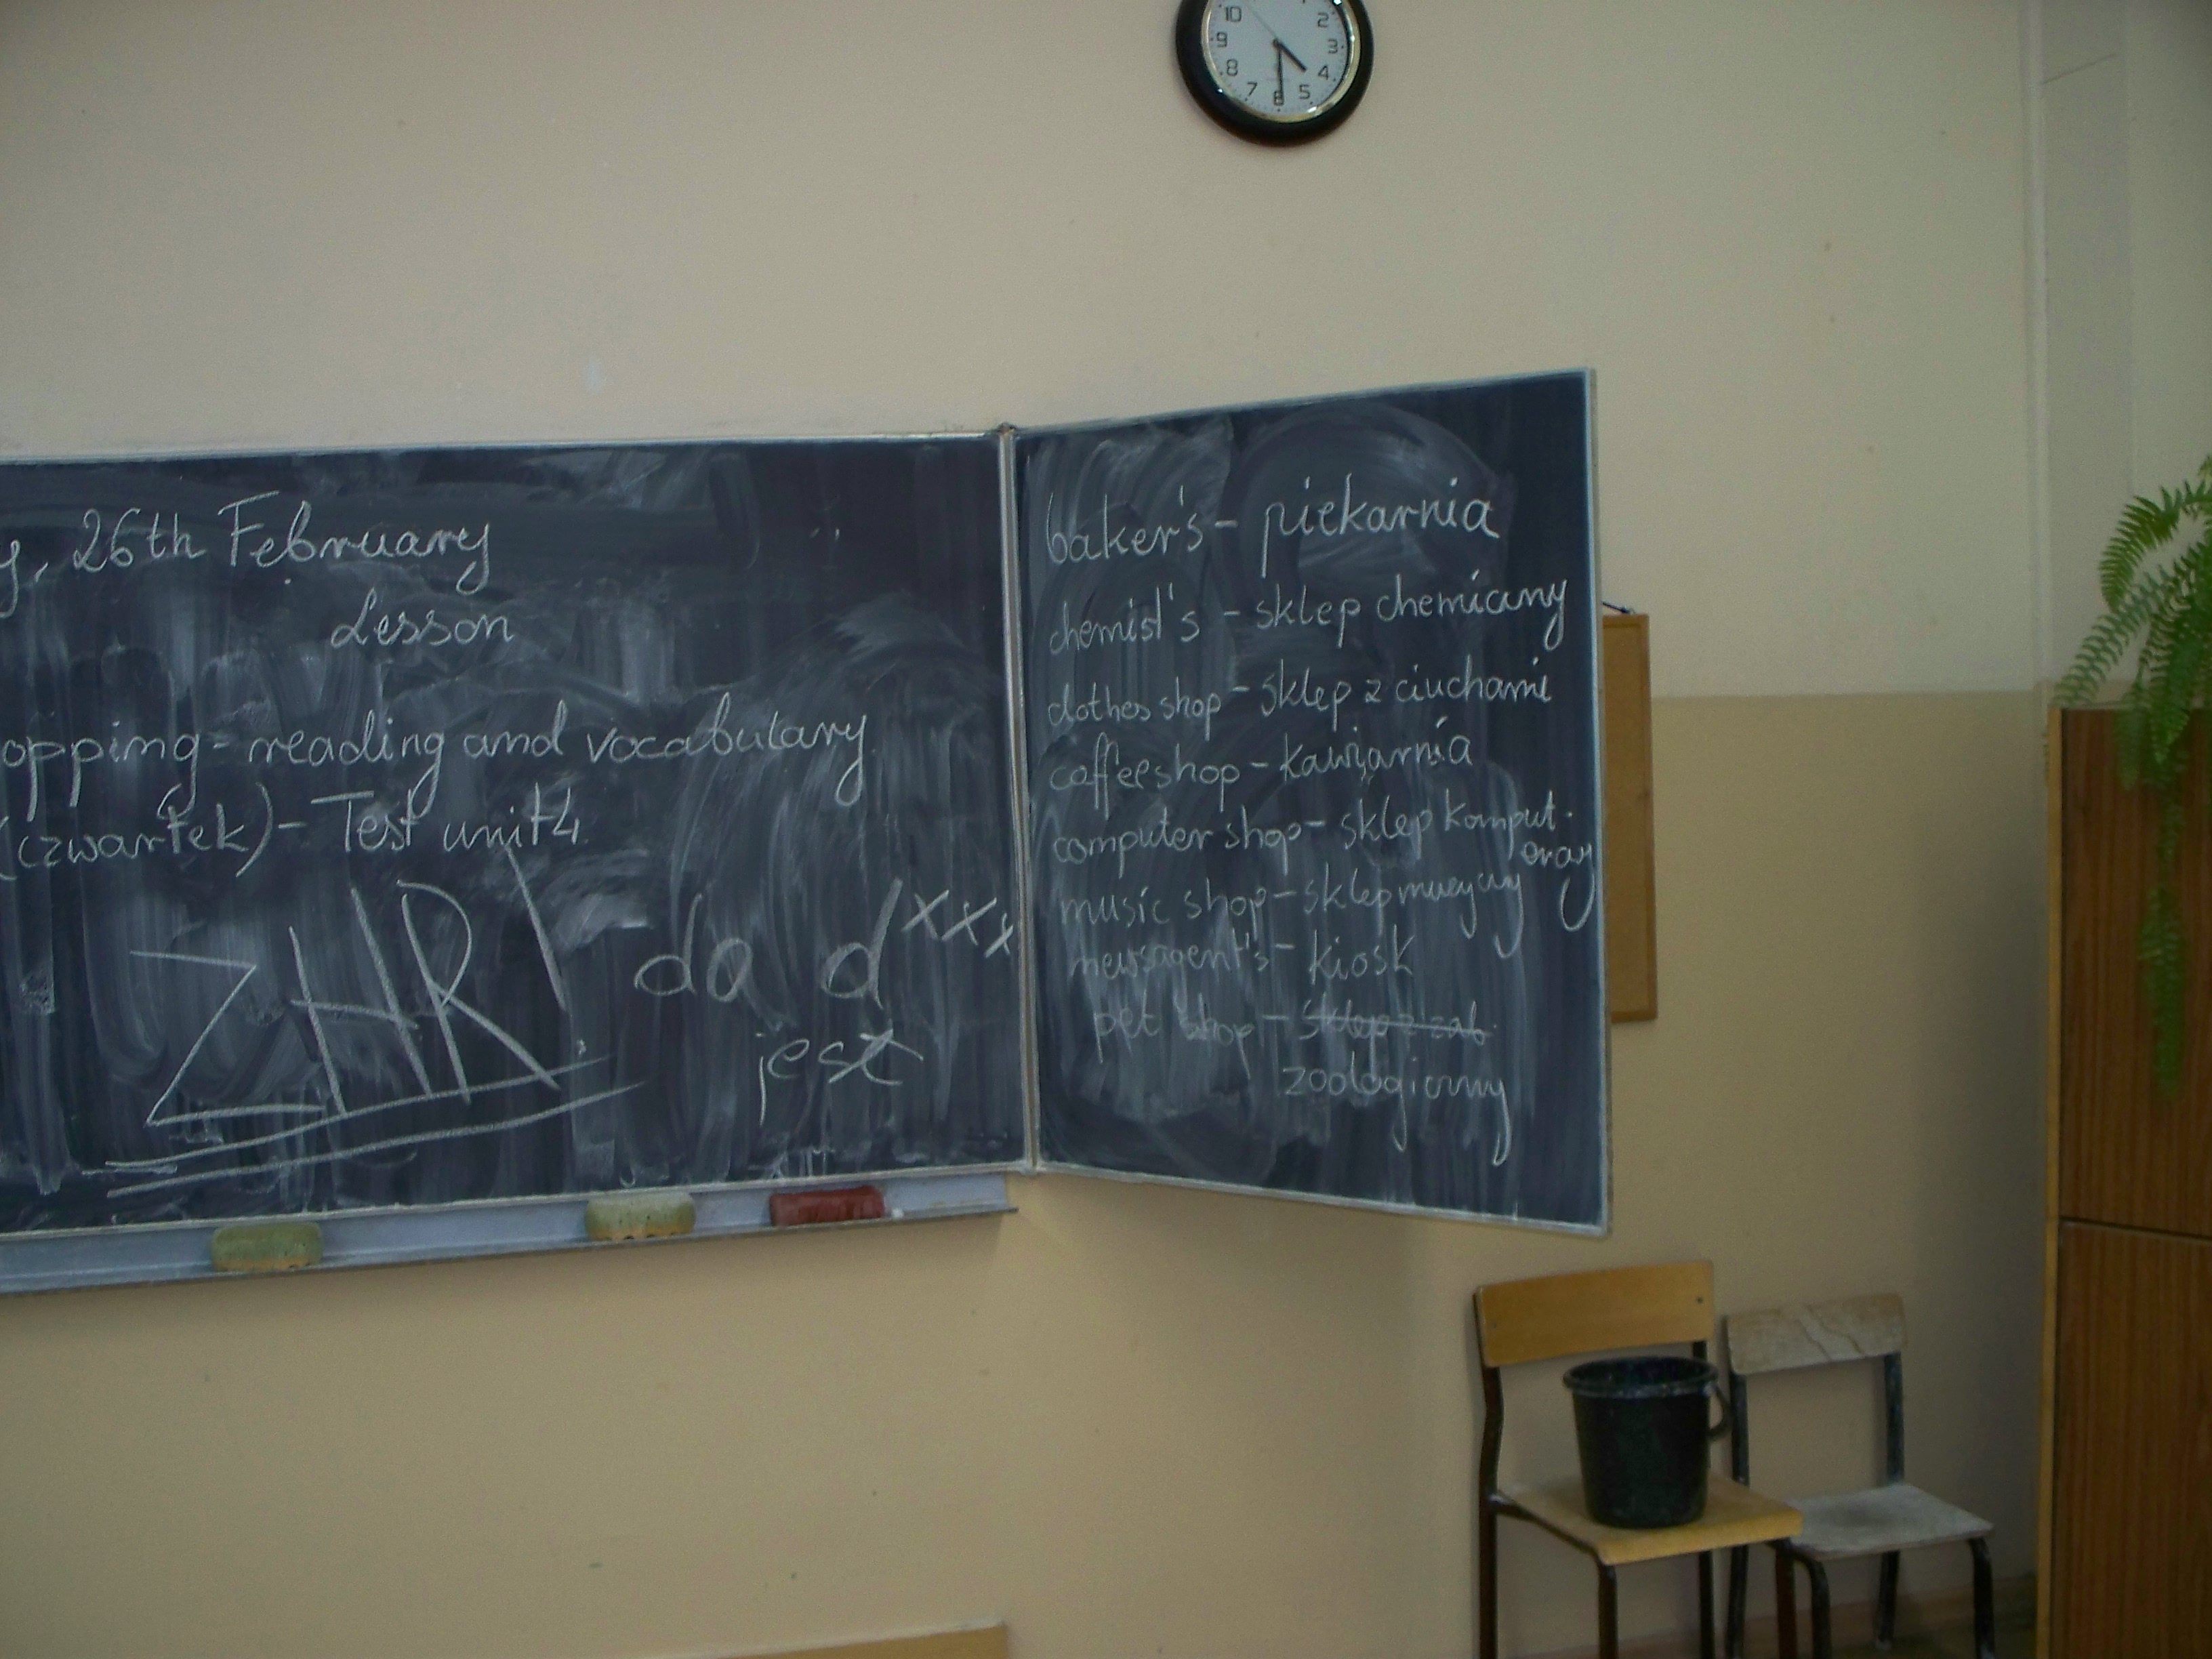 10 2
9 3
8 4
7 6 5
y, 26th February
Lesson
opping - reading and vocabulary
(czwartek) - Test unit 4.
ZHR! da d xxx
jest
baker's - piekarnia
chemist's - sklep chemiczny
clothes shop - sklep z ciuchami
coffeeshop - kawiarnia
computer shop - sklep komput.
erowy
music shop - sklep muzyczny
newsagent's - kiosk
pet shop - sklep z zab
zoologiczny